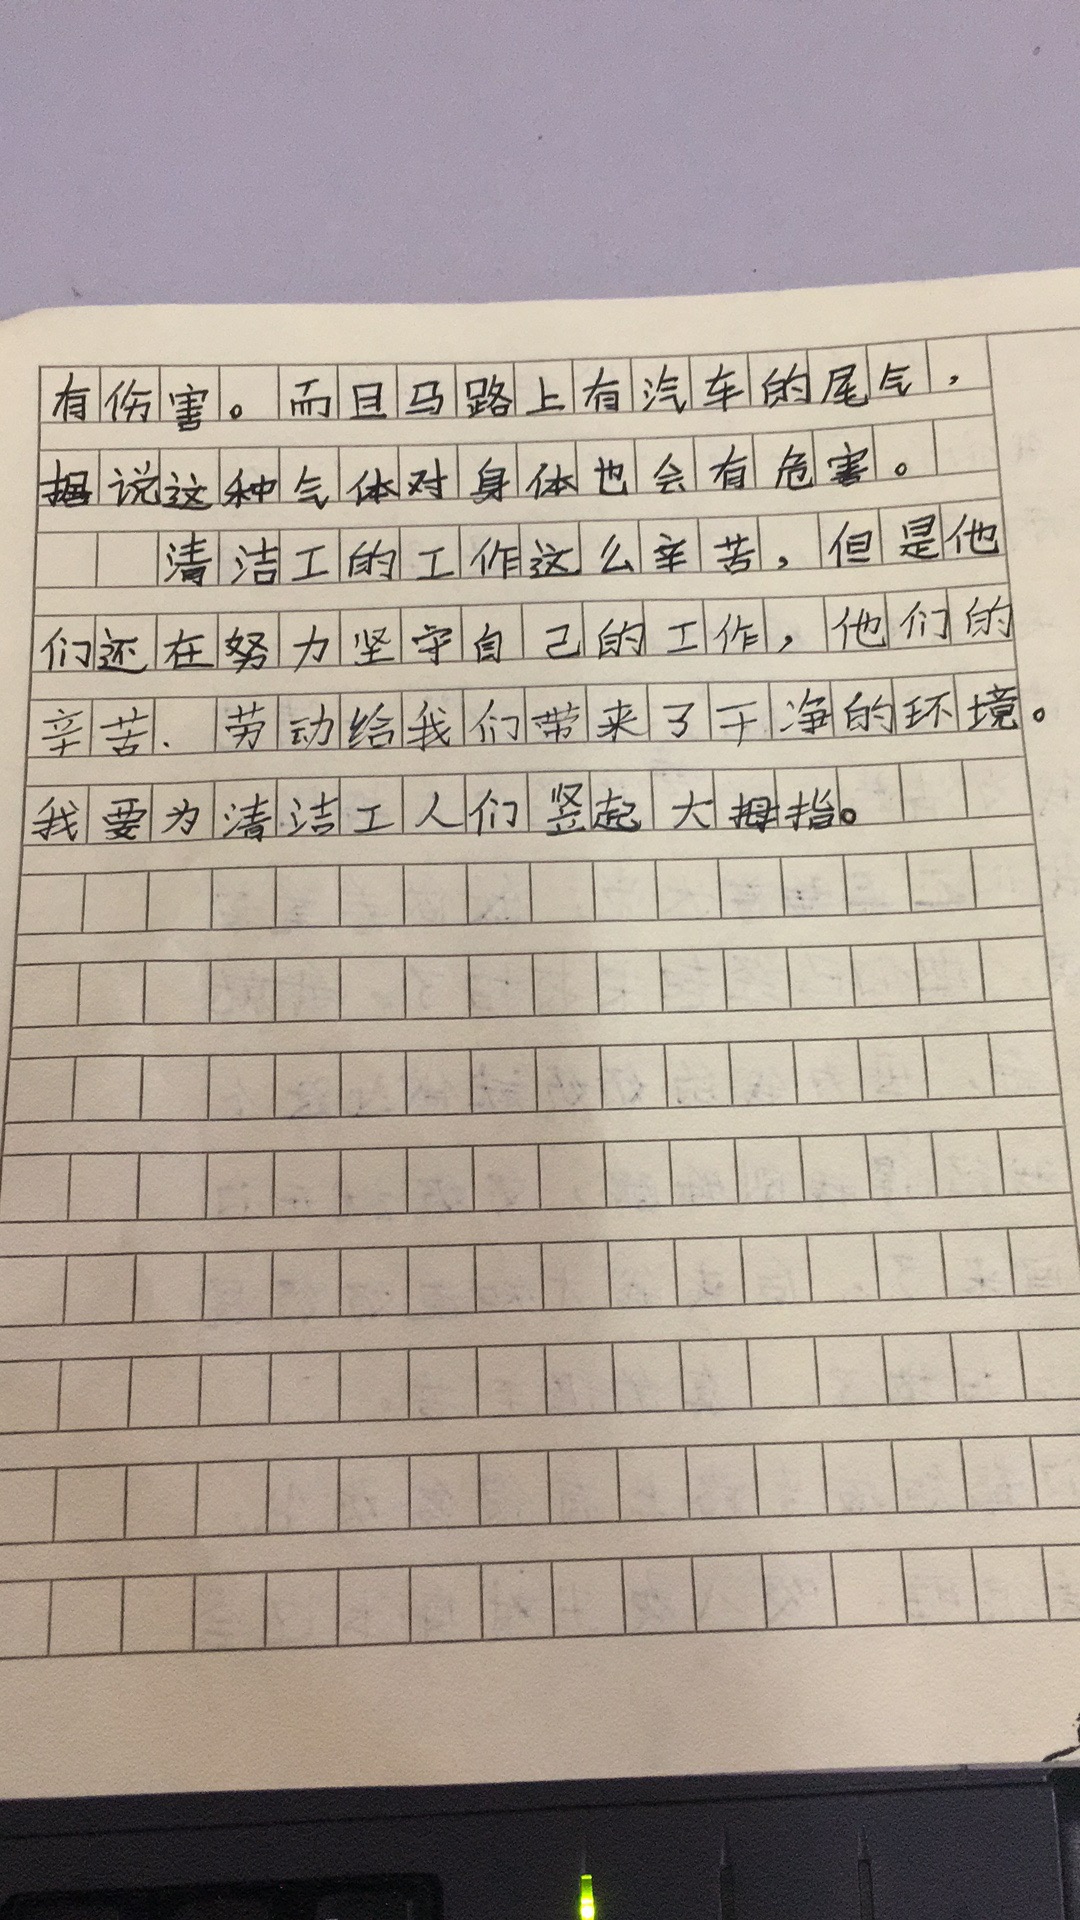 有伤害。而且马路上有汽车的尾气，
据说这种气体对身体也会有危害。
清洁工的工作这么辛苦，但是他
们还在努力坚守自己的工作，他们的
辛苦、劳动给我们带来了干净的环境。
我要为清洁工人们竖起大拇指。